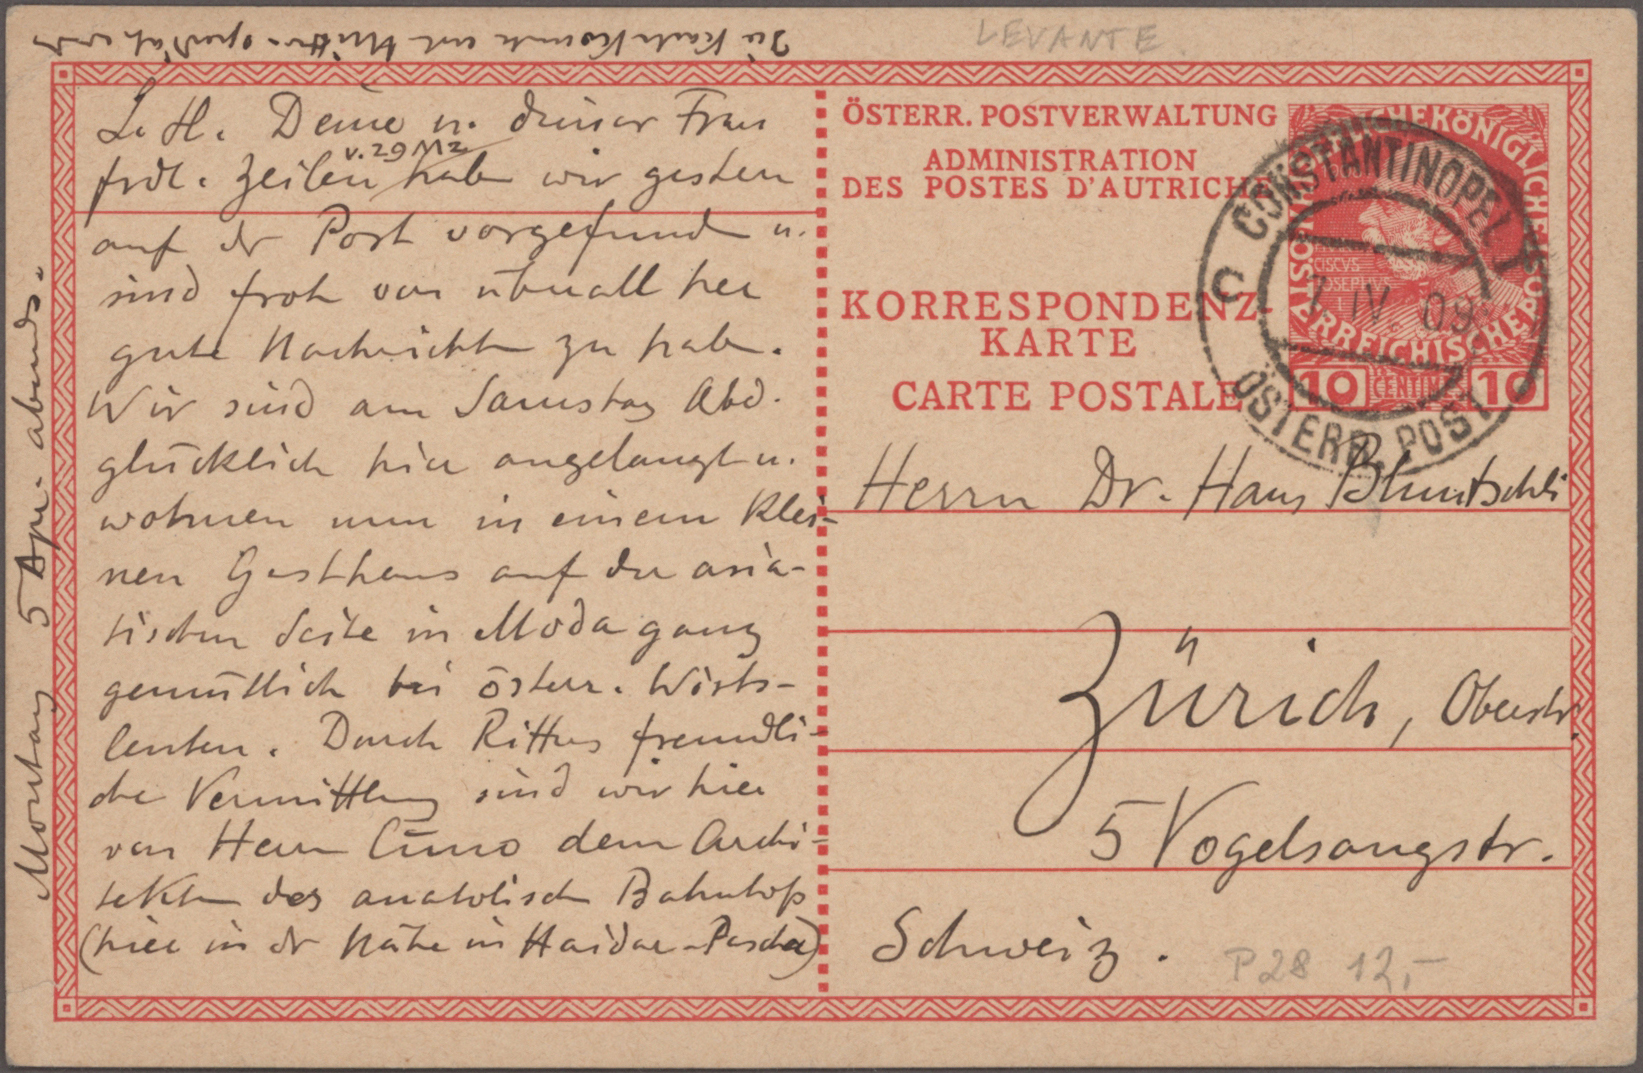 LEVANTE.
Die Karte
L. H. Deine u. deiner Frau
v. 29 MZ
frdl. Zeilen haben wir gestern
auf der Post vorgefunden u.
sind froh von überall her
gute Nachrichten zu haben.
Wir sind am Samstag Abd.
glücklich hier angelangt u.
wohnen nun in einem klei-
nen Gasthaus auf der asia-
tischen Seite in Moda ganz
gemütlich bei österr. Wirts-
leuten. Durch Ritters freundli-
che Vermittlung sind wir hier
von Herrn Cuno dem Archi-
tekten des anatolischen Bahnhofs
(hier in der Nähe in Haidar-Pascha)
Montag 5 Apr. abends.
ÖSTERR. POSTVERWALTUNG
ADMINISTRATION
DES POSTES D'AUTRICHE
KORRESPONDENZ-
KARTE
CARTE POSTALE
KAISERLICHEKÖNIGLICHE ÖSTERREICHISCHE POST
CISCVS
IOSEPHVS
10 CENTIMES 10
CONSTANTINOPEL I
C
IV 09
ÖSTERR. POST
Herrn Dr. Hans Bluntschli
Zürich, Oberstr.
5 Vogelsangstr.
Schweiz.
P28 12,-